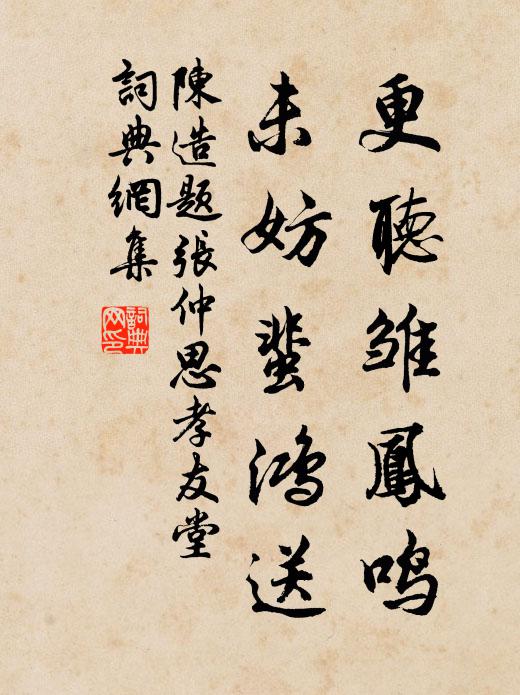 更聽雏鳳鸣
未妨蜚鸿送
陳造題張仲思孝友堂
詞典網集
詞典网印